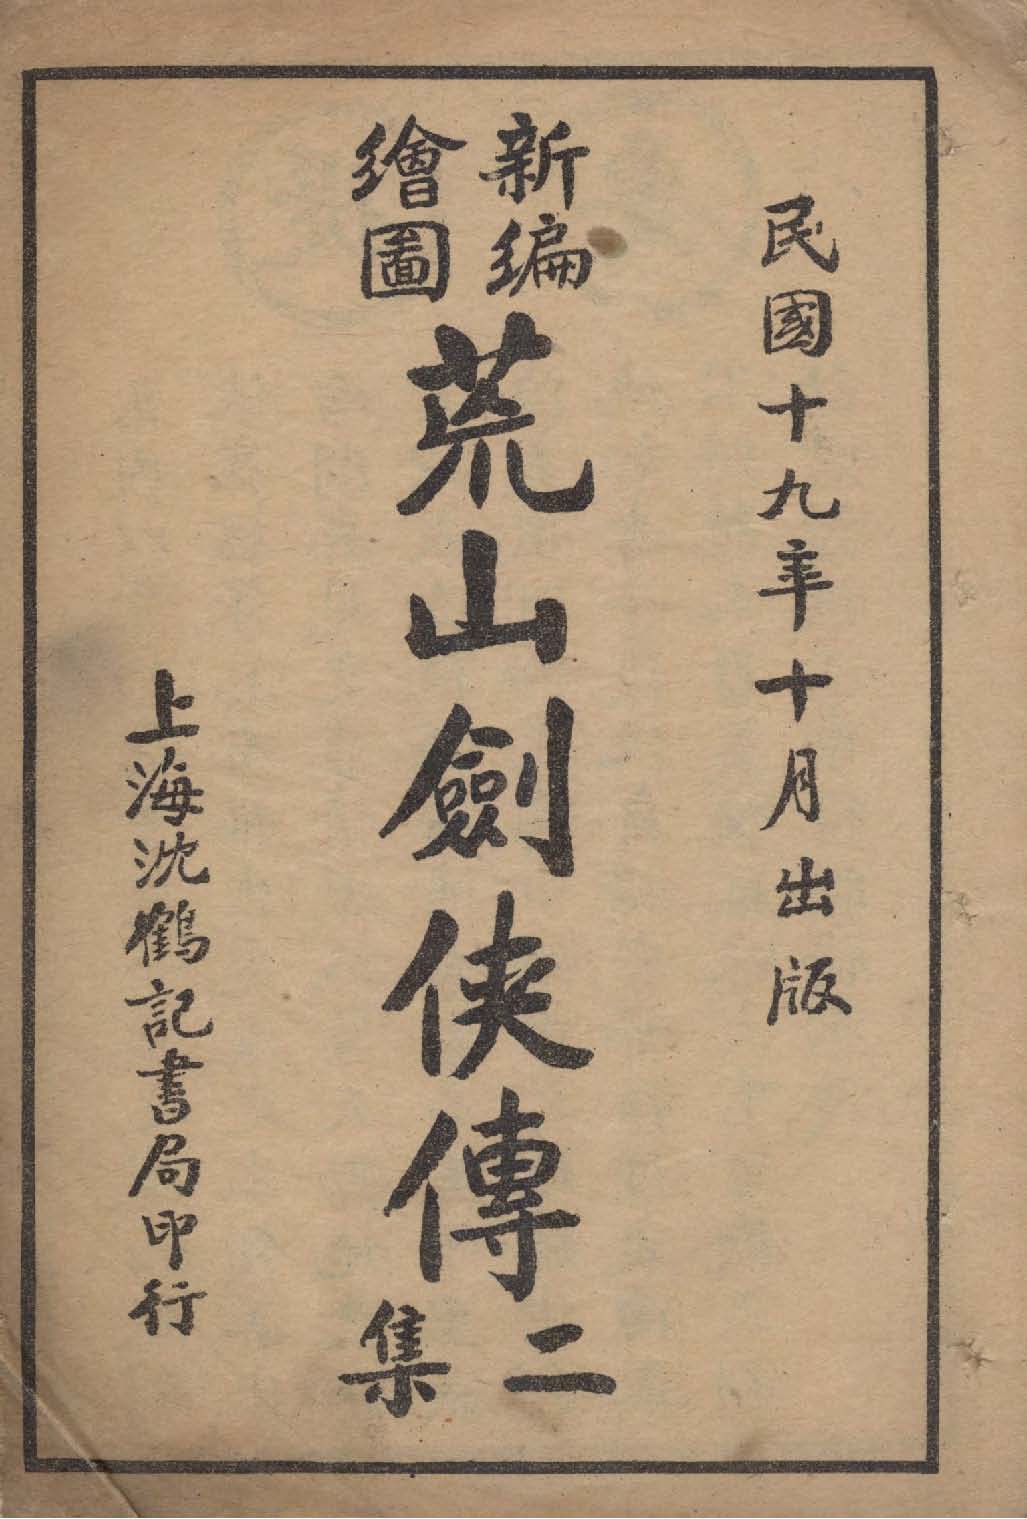 民國十九年十月出版
新編
繪圖
荒山劍俠傳
二集
上海沈鶴記書局印行